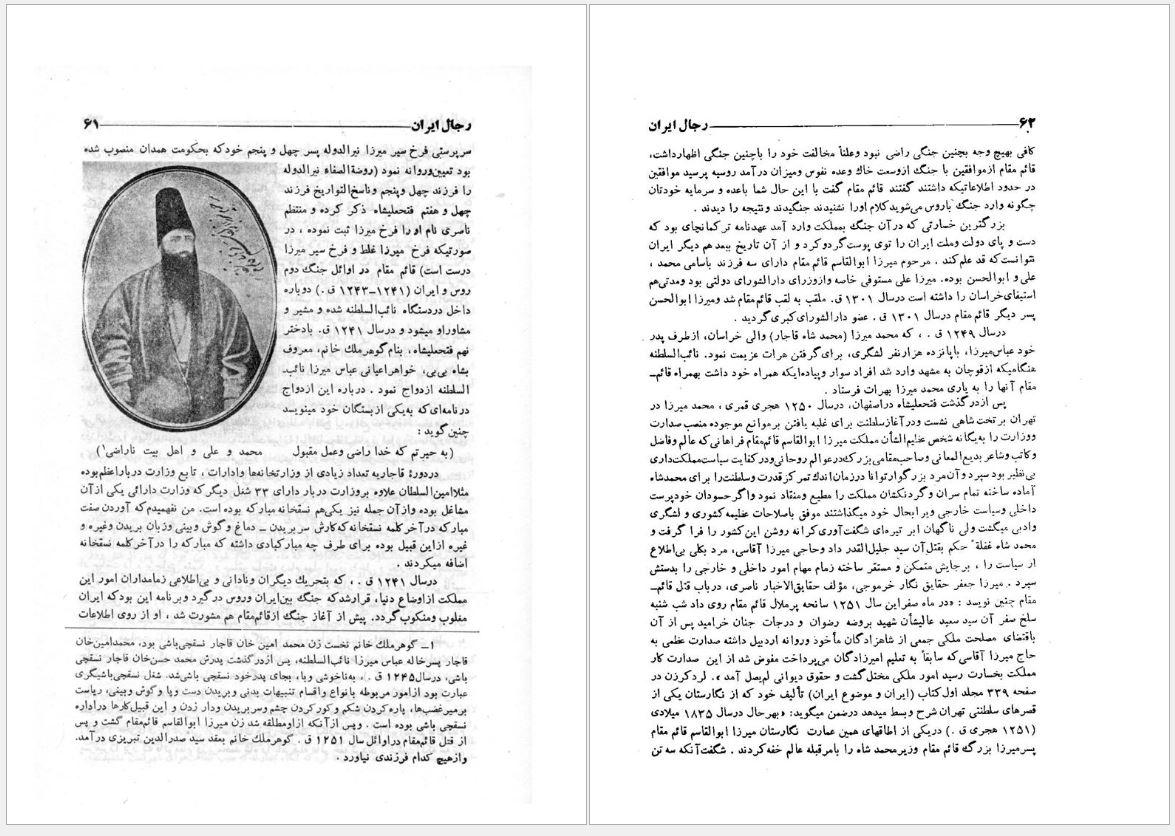 رجال ایران ۶۱
سرپرستی فرخ سیر میرزا نیرالدوله پسر چهل و پنجم خود که بحکومت همدان منصوب شده
بود تعیین وروانه نمود (روضة الصفاء نیرالدوله
را فرزند چهل وپنجم وناسخ التواریخ فرزند
چهل و هفتم فتحعلیشاه ذکر کرده و منتظم
ناصری نام او را فرخ میرزا ثبت نموده ، در
صورتیکه فرخ میرزا غلط و فرخ سیر میرزا
درست است) قائم مقام در اوائل جنگ دوم
روس و ایران (۱۲۴۱-۱۲۴۳ ق .) دوباره
داخل دردستگاه نائب السلطنه شده و مشیر و
مشاور او میشود و درسال ۱۲۴۱ ق. بادختر
نهم فتحعلیشاه، بنام گوهر ملك خانم، معروف
بشاه بی بی، خواهراعیانی عباس میرزا نائب‌ـ
السلطنه ازدواج نمود . درباره این ازدواج
درنامه‌ای که به‌یکی ازبستگان خود مینویسد
چنین گوید :
(به حیرتم که خدا راضی وعمل مقبول محمد و علی و اهل بیت ناراضی۱)
دردورۀ قاجاریه تعداد زیادی از وزارتخانه‌ها وادارات ، تابع وزارت درباراعظم بوده
مثلا امین السلطان علاوه بروزارت دربار دارای ۳۳ شغل دیگر که وزارت دارائی یکی ازآن
مشاغل بوده وازآن جمله نیز یکی هم نسقخانه مبارکه بوده است. من نفهمیدم که آوردن صفت
مبارکه در آخر کلمه نسقخانه که کارش سر بریدن ـ دماغ و گوش وبینی وزبان بریدن وغیره و
غیره ازاین قبیل بوده برای طرف چه مبارکبادی داشته که مبارکه را درآخر کلمه نسقخانه
اضافه میکردند .
درسال ۱۲۴۱ ق . ، که بتحریك دیگران ونادانی و بی‌اطلاعی زمامداران امور این
مملکت ازاوضاع دنیا، قرارشد که جنگ بین ایران وروس درگیرد وبرنامه این بود که ایران
مغلوب ومنکوب گردد. پیش از آغاز جنگ ازقائم مقام هم مشورت شد ، او از روی اطلاعات
۱ـ گوهرملك خانم نخست زن محمد امین خان قاجار نسقچی باشی بود، محمدامین خان
قاجار پسرخاله عباس میرزا نائب السلطنه، پس ازدرگذشت پدرش محمد حسن خان قاجار نسقچی
باشی، درسال ۱۲۴۵ ق . ، به ناخوشی وبا، بجای پدرخود نسقچی باشی شد. شغل نسقچی باشیگری
عبارت بود ازامور مربوطه بانواع واقسام تنبیهات بدنی و بریدن دست وپا وگوش وبینی، ریاست
برمیرغضب‌ها، پاره کردن شکم و کور کردن چشم وسربریدن ودار زدن و این قبیل کارها دراداره
نسقچی باشی بوده است . وپس ازآنکه ازاو مطلقه شد زن میرزا ابوالقاسم قائم مقام گشت و پس
از قتل قائم مقام دراوائل سال ۱۲۵۱ ق . گوهرملك خانم بعقد سید صدرالدین تبریزی درآمد.
وازهیچ کدام فرزندی نیاورد .
۶۲ رجال ایران
کافی بهیچ وجه بچنین جنگی راضی نبود وعلناً مخالفت خود را باچنین جنگی اظهارداشت،
قائم مقام ازموافقین با جنگ ازوسعت خاك وعده نفوس ومیزان درآمد روسیه پرسید موافقین
در حدود اطلاعاتیکه داشتند گفتند قائم مقام گفت با این حال شما باعده و سرمایه خودتان
چگونه وارد جنگ باروس می‌شوید کلام اورا نشنیدند جنگیدند ونتیجه را دیدند .
بزرگترین خسارتی که درآن جنگ بمملکت وارد آمد عهدنامه ترکمانچای بود که
دست و پای دولت وملت ایران را توی پوست گردو کرد و از آن تاریخ ببعد هم دیگر ایران
نتوانست که قد علم کند . مرحوم میرزا ابوالقاسم قائم مقام دارای سه فرزند باسامی محمد ،
علی و ابوالحسن بوده. میرزا علی مستوفی خاصه وازوزرای دارالشورای دولتی بود ومدتی هم
استیفای خراسان را داشته است درسال ۱۳۰۱ ق. ملقب به لقب قائم مقام شد ومیرزا ابوالحسن
پسر دیگر قائم مقام درسال ۱۳۰۱ ق . عضو دارالشورای کبری گردید .
درسال ۱۲۴۹ ق . ، که محمد میرزا (محمد شاه قاجار) والی خراسان، ازطرف پدر
خود عباس میرزا، باپانزده هزارنفر لشگری، برای گرفتن هرات عزیمت نمود. نائب السلطنه
هنگامیکه ازقوچان به مشهد وارد شد افراد سوار وپیاده‌ایکه همراه خود داشت بهمراه قائم‌ـ
مقام آنها را به یاری محمد میرزا بهرات فرستاد .
پس ازدرگذشت فتحعلیشاه دراصفهان، درسال ۱۲۵۰ هجری قمری ، محمد میرزا در
تهران برتخت شاهی نشست ودرآغازسلطنت برای غلبه یافتن برموانع موجوده منصب صدارت
ووزارت را به‌یگانه شخص عظیم الشأن مملکت میرزا ابوالقاسم قائم مقام فراهانی که عالم وفاضل
وکاتب وشاعر بدیع المعانی وصاحب مقامی بزرگ درعوالم روحانی ودرکفایت سیاست مملکت داری
بی‌نظیر بود سپرد وآن مرد بزرگوارتوانا درزمان اندك تمرکزقدرت وسلطنت را برای محمدشاه
آماده ساخته تمام سران وگردنکشان مملکت را مطیع ومنقاد نمود واگرحسودان خودپرست
داخلی وسیاست خارجی ویرا بحال خود میگذاشتند موفق باصلاحات عظیمه کشوری و لشگری
وادبی میگشت ولی ناگهان ابر تیره‌ای شگفت‌آوری کرانه روشن این کشور را فرا گرفت و
محمد شاه غفلةً حکم بقتل آن سید جلیل القدر داد وحاجی میرزا آقاسی، مرد بکلی بی‌اطلاع
از سیاست را ، برجایش متمکن و مستقر ساخته زمام مهام امور داخلی و خارجی را بدستش
سپرد . میرزا جعفر حقایق نگار خرموجی، مؤلف حقایق الاخبار ناصری، درباب قتل قائم‌ـ
مقام چنین نویسد : «در ماه صفر این سال ۱۲۵۱ سانحه پرملال قائم مقام روی داد شب شنبه
سلخ صفر آن سید سعید عالیشأن شهید بروضه رضوان و درجات جنان خرامید پس از آن
باقتضای مصلحت ملکی جمعی از شاهزادگان مأخوذ وروانه اردبیل داشته صدارت عظمی به
حاج میرزا آقاسی که سابقاً به تعلیم امیرزادگان می‌پرداخت مفوض شد از این صدارت کار
مملکت بخسارت رسید امور ملکی مختل گشت و حقوق دیوانی لم‌یصل آمد». لرد کرزن در
صفحه ۳۳۹ مجلد اول کتاب (ایران و موضوع ایران) تألیف خود که از نگارستان یکی از
قصرهای سلطنتی تهران شرح وبسط میدهد درضمن میگوید: «بهرحال درسال ۱۸۳۵ میلادی
(۱۲۵۱ هجری ق .) دریکی از اطاقهای همین عمارت نگارستان میرزا ابوالقاسم قائم مقام
پسرمیرزا بزرگ قائم مقام وزیرمحمد شاه را بامرقبله عالم خفه کردند . شگفت آنکه سه تن